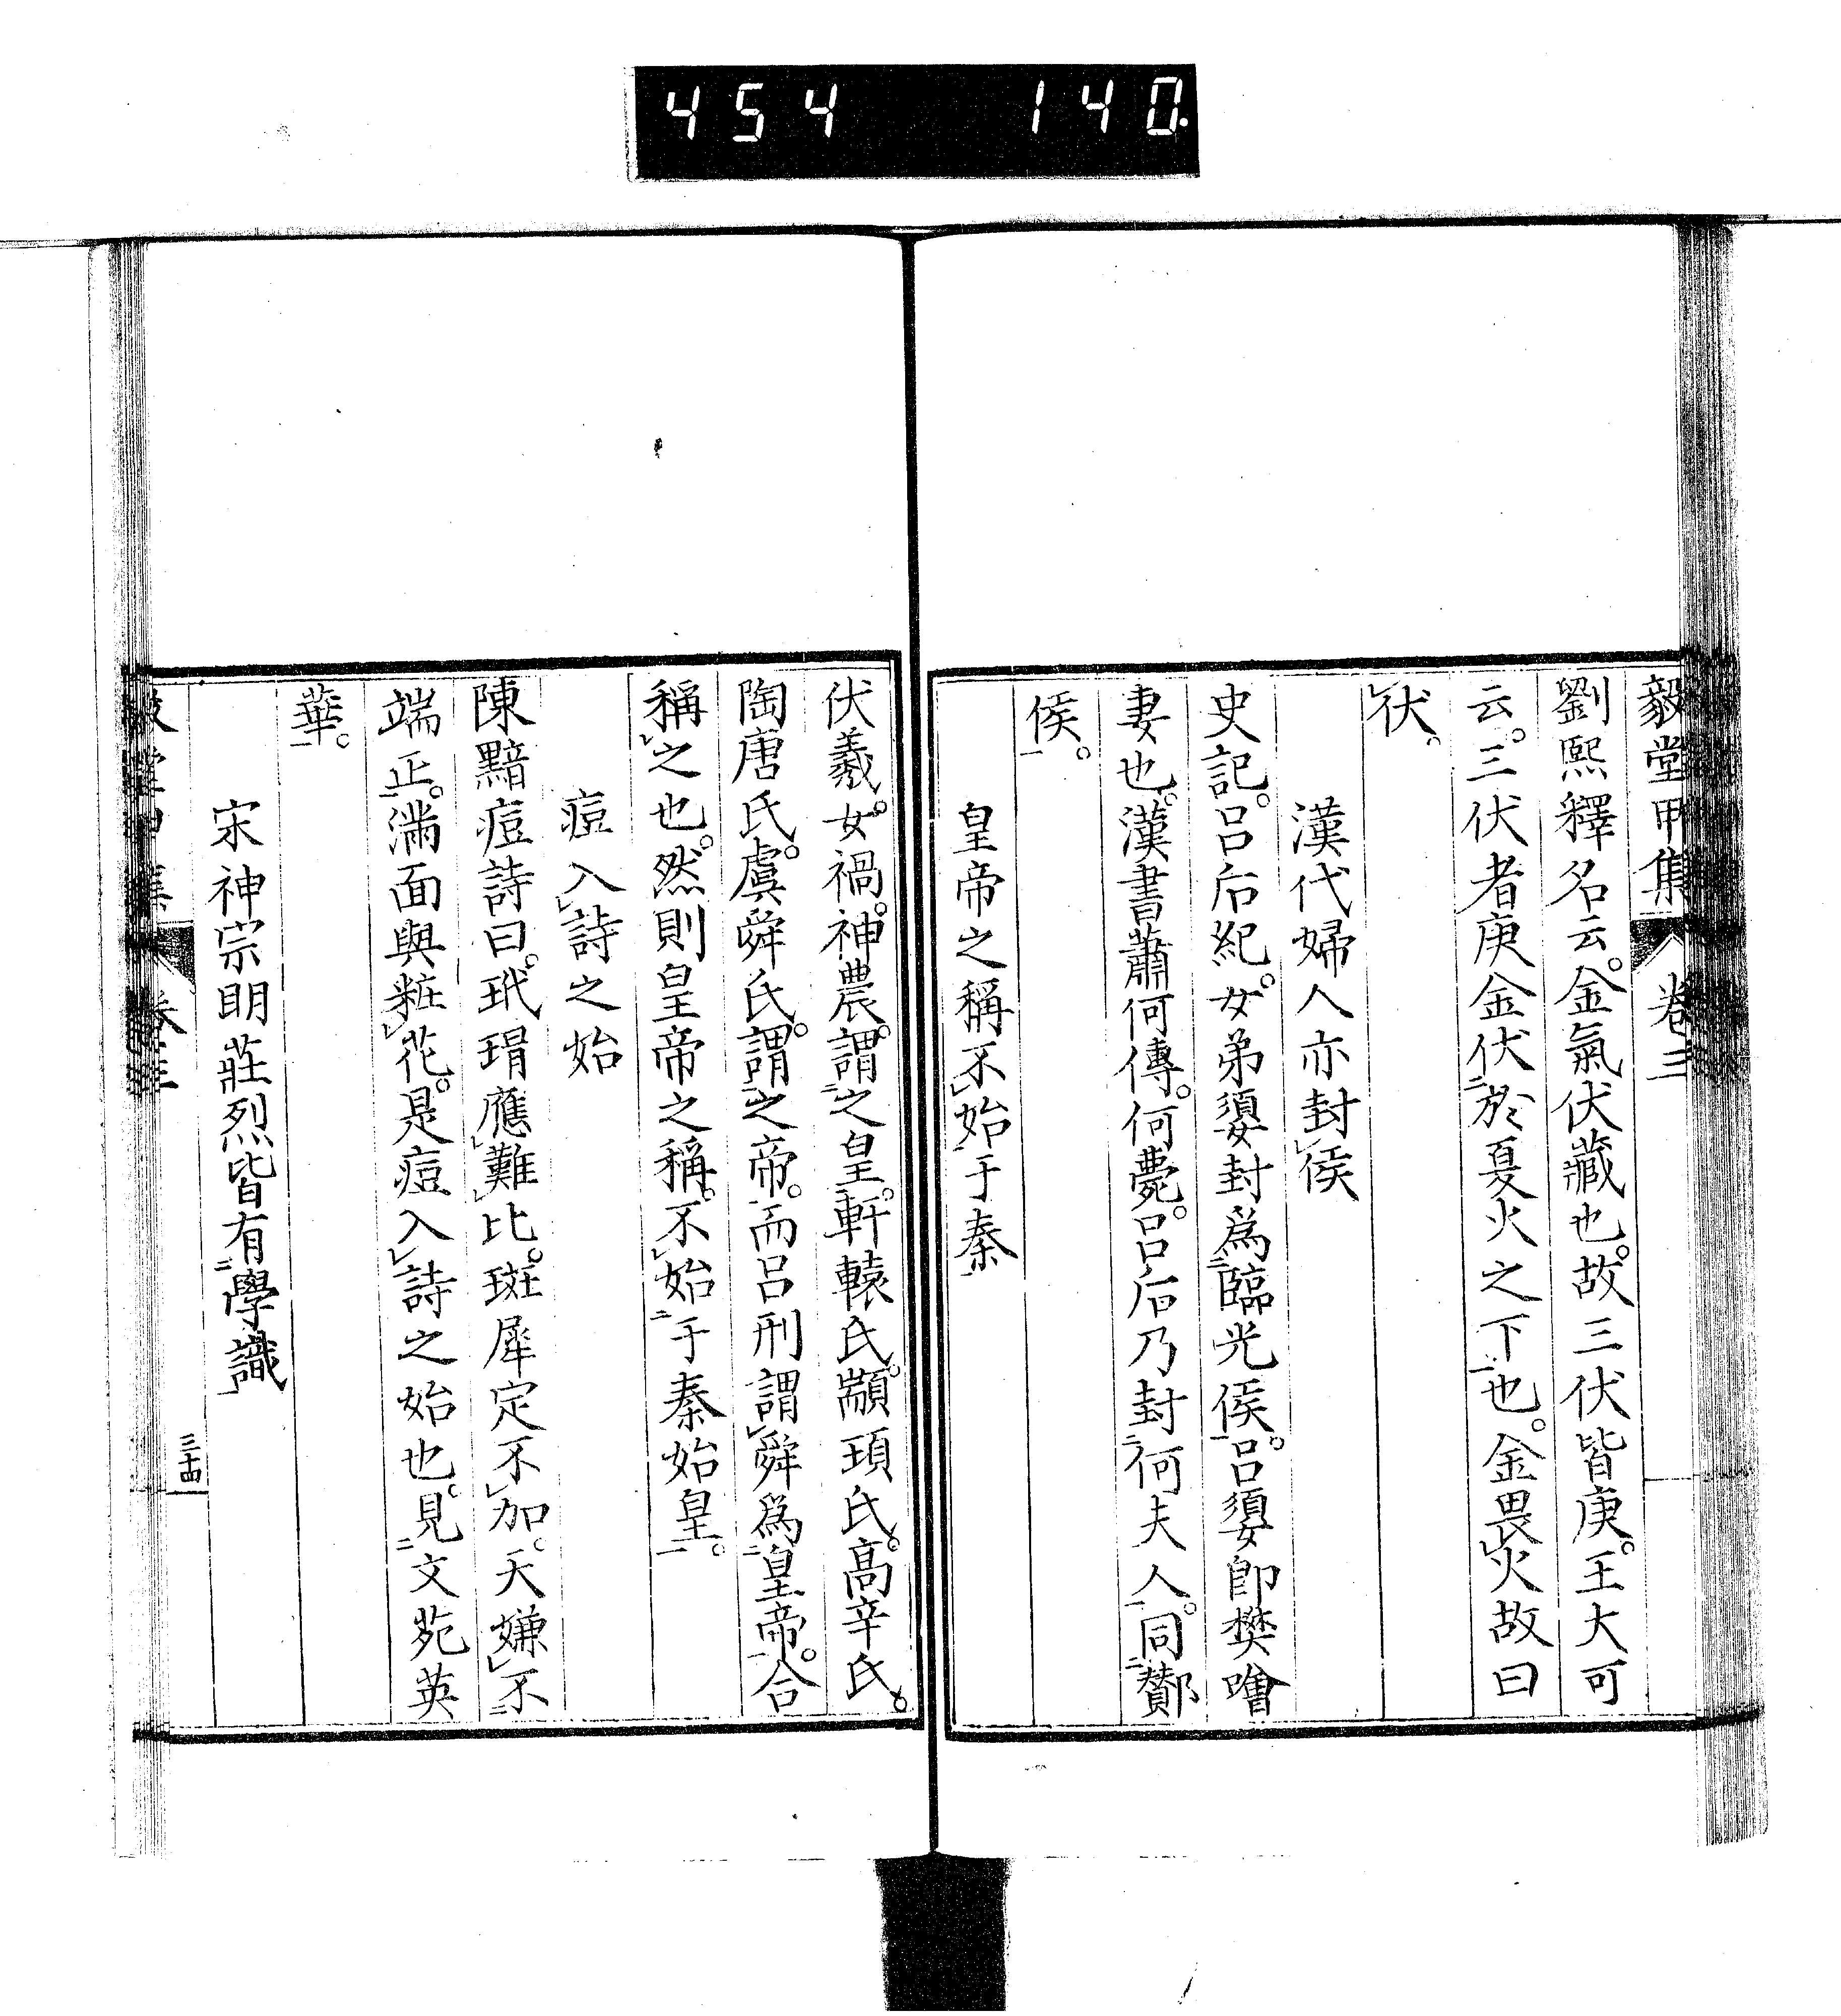 454 140.
毅堂甲集 卷三
劉熙釋名云。金氣伏藏也。故三伏皆庚。王大可
云。三伏者庚金伏二於夏火之下一也。金畏レ火故曰
レ伏。
漢代婦人亦封レ侯
史記。呂后紀。女弟嬃封爲二臨光侯一。呂嬃卽樊噲
妻也。漢書蕭何傳。何薨。呂后乃封二何夫人一。同二酇
侯一。
皇帝之稱不レ始二于秦一
伏羲。女禍。神農。謂二之皇一。軒轅氏。顓頊氏。高辛氏。
陶唐氏。虞舜氏。謂二之帝一。而呂刑謂レ舜爲二皇帝一。合
稱レ之也。然則皇帝之稱。不レ始二于秦始皇一。
痘入レ詩之始
陳黯痘詩曰。玳瑁應レ難レ比。斑犀定不レ加。天嫌レ不二
端正一。滿面與粧レ花。是痘入レ詩之始也。見二文苑英
華一。
宋神宗明莊烈皆有二學識一
三十四
毅堂甲集 卷三